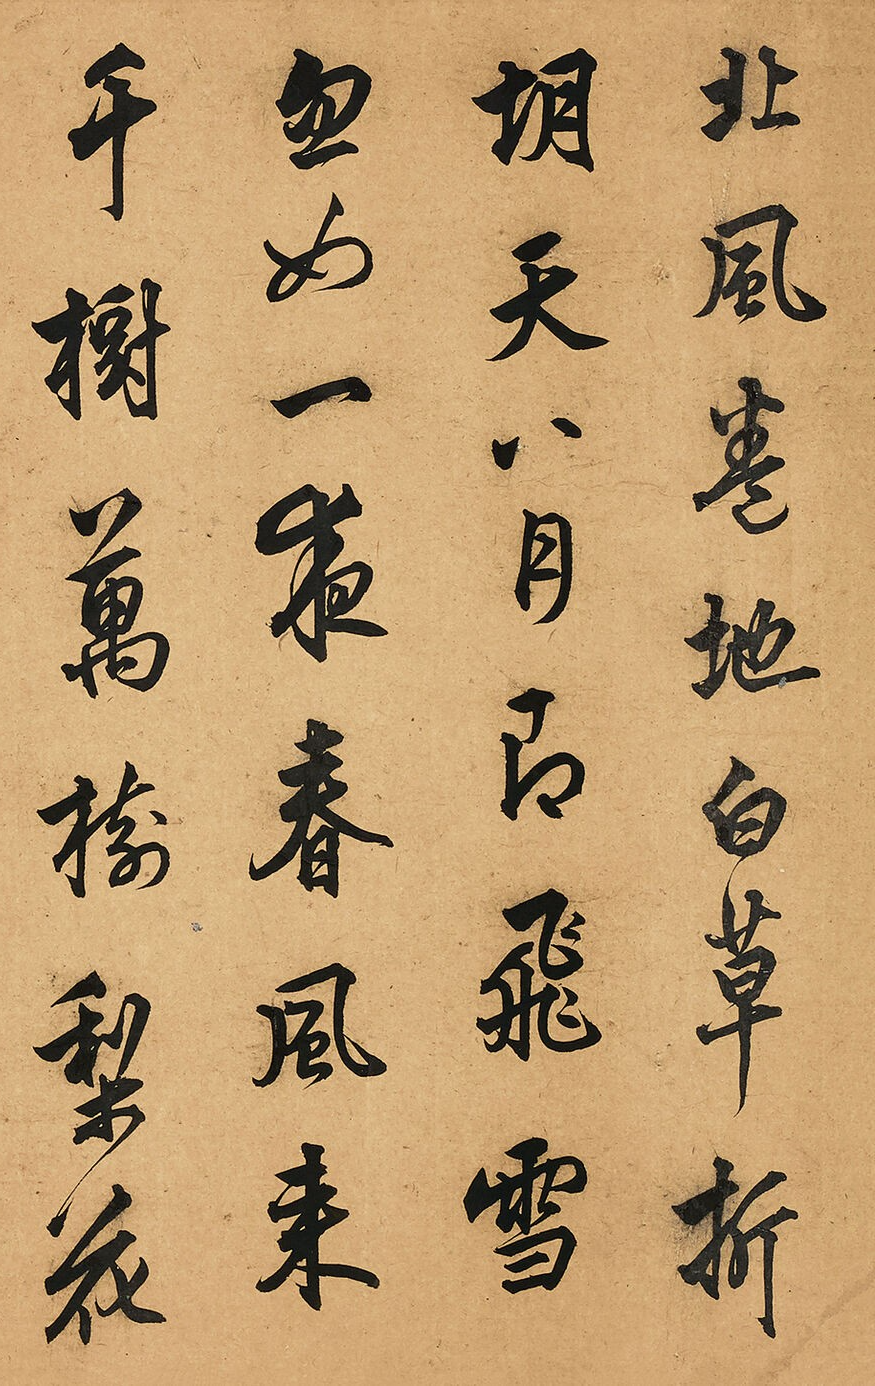 北風卷地白草折
胡天八月即飛雪
忽如一夜春風来
千樹萬樹梨花